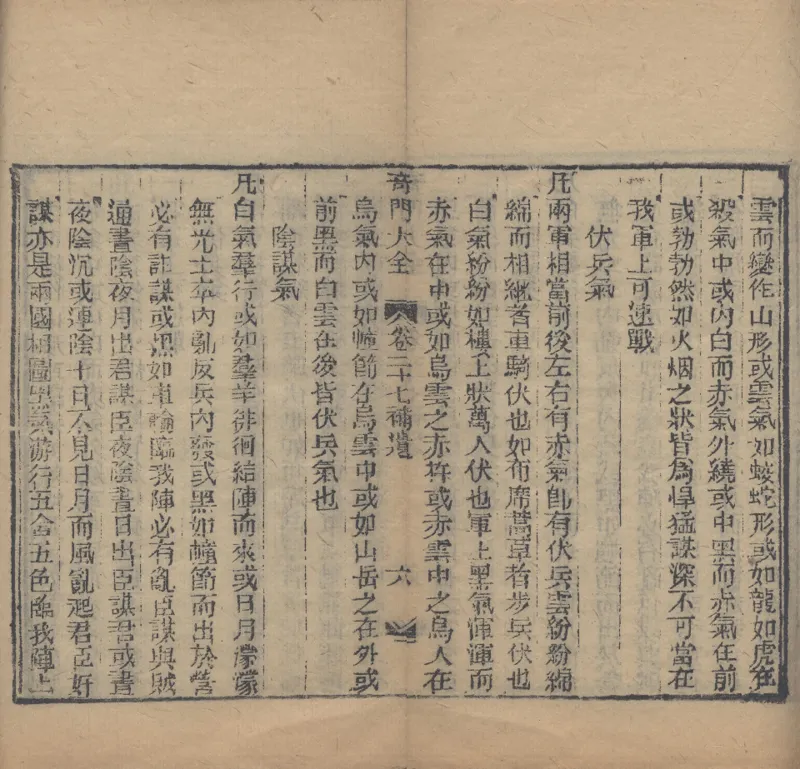 雲而變作山形或雲氣如蛟蛇形或如龍如虎在
殺氣中或內白而赤氣外繞或中黑而赤氣在前
或勃勃然如火烟之狀皆為悍猛謀深不可當在
我軍上可速戰
伏兵氣
凡兩軍相當前後左右有赤氣卽有伏兵雲紛紛綿
綿而相繼者車騎伏也如布席蒿草者步兵伏也
白氣紛紛如樓上狀萬人伏也軍上黑氣渾渾而
赤氣在中或如烏雲之赤杵或赤雲中之烏人在
奇門大全 卷二十七補遺 六
烏氣內或如幢節在烏雲中或如山岳之在外或
前黑而白雲在後皆伏兵氣也
陰謀氣
凡白氣羣行或如羣羊徘徊結陣而來或日月濛濛
無光士卒內亂反兵內發或黑如幢節而出於營
必有詐謀或黑如車輪臨我陣必有亂臣謀與賊
通晝陰夜月出君謀臣夜陰晝日出臣謀君或晝
夜陰沉或連陰十日不見日月而風亂起君臣奸
謀亦是兩國相圖黑氣游行五合五色臨我陣上